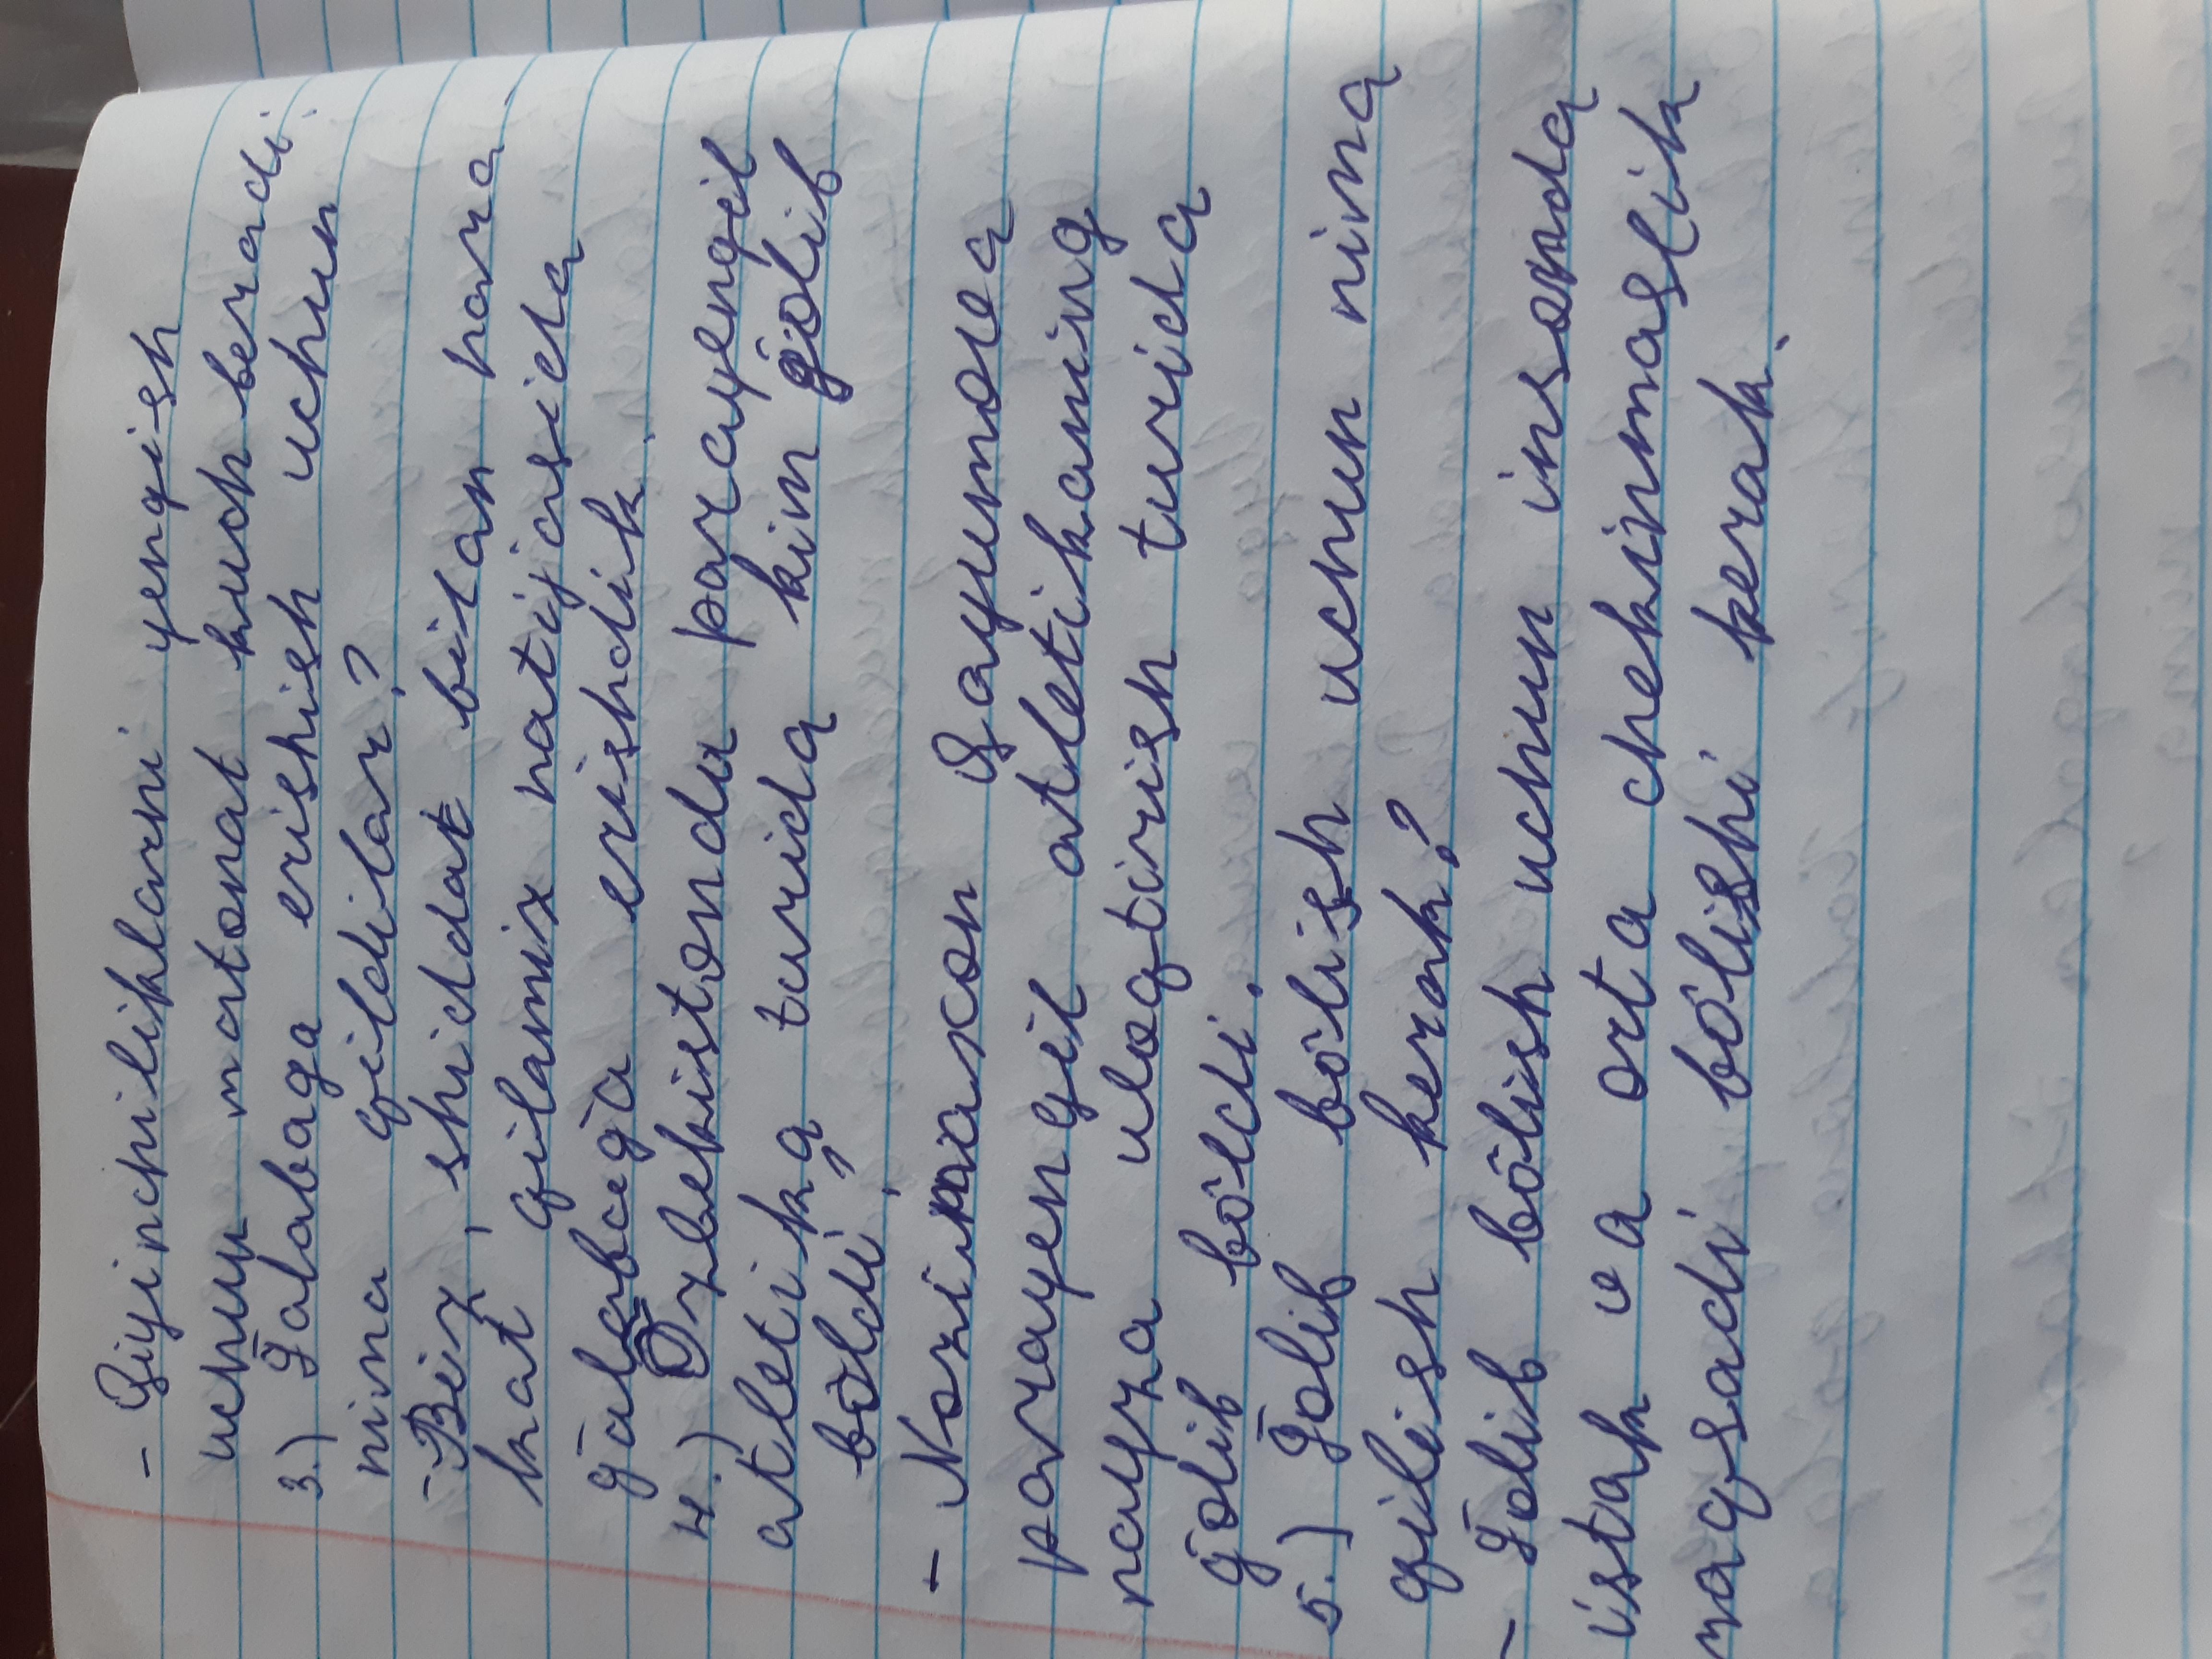 - Qiyinchiliklarni yengish
uchun matonat kuch beradi.
3.) Ḡalabaga erishish uchun
nima qildilar?
- Biz, shiddat bilan hara-
kat qilamiz natijasida
ḡalabaga erishdik.
4.) Ōzbekistonda parayengil
atletika, turida kim ḡolib
bōldi.
- Nozimaxon Qayumova
parayengil atletikaning
nayza uloqtirish turida
ḡolib bōldi.
5.) Ḡolib bōlish uchun nima
qilish kerak?
- Ḡolib bōlish uchun insonda
istak va orta chekinmaslik
maqsadi bōlishi kerak.